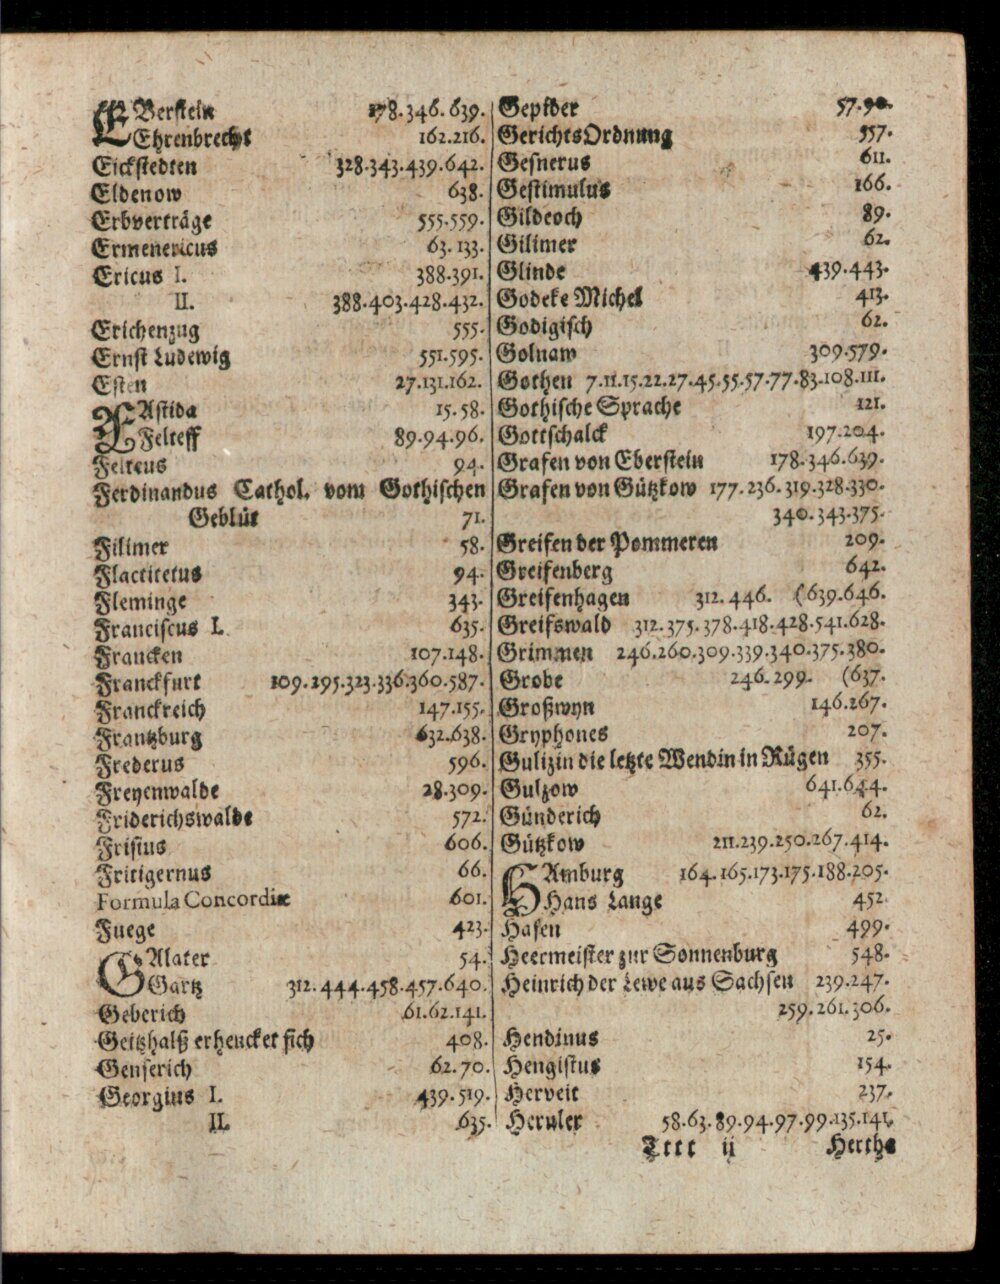 EBerstein 178.346.639.
Ehrenbrecht 162.216.
Eickstedten 328.343.439.642.
Eldenow 638.
Erbverträge 555.559.
Ermenericus 63.133.
Ericus I. 388.391.
II. 388.403.428.432.
Erichenzug 555.
Ernst Ludewig 551.595.
Esten 27.131.162.
FAstida 15.58.
Felteff 89.94.96.
Felteus 94.
Ferdinandus Cathol. vom Gothischen
Geblüt 71.
Filimer 58.
Flactitetus 94.
Fleminge 343.
Franciscus I. 635.
Francken 107.148.
Franckfurt 109.295.323.336.360.587.
Franckreich 147.155.
Frantzburg 632.638.
Frederus 596.
Freyenwalde 28.309.
Friderichswalde 572.
Frisius 606.
Fritigernus 66.
Formula Concordiæ 601.
Fuege 423.
GAlater 54.
Gartz 312.444.458.457.640.
Geberich 61.62.141.
Geitzhalß erhencket sich 408.
Genserich 62.70.
Georgius I. 439.519.
II. 635.
Gepider 57.90.
GerichtsOrdnung 557.
Gesnerus 611.
Gestimulus 166.
Gildeoch 89.
Gilimer 62.
Glinde 439.443.
Godeke Michel 413.
Godigisch 62.
Golnaw 309.579.
Gothen 7.11.15.22.27.45.55.57.77.83.108.111.
Gothische Sprache 121.
Gottschalck 197.204.
Grafen von Eberstein 178.346.639.
Grafen von Gützkow 177.236.319.328.330.
340.343.375.
Greifen der Pommeren 209.
Greifenberg 642.
Greifenhagen 312.446. (639.646.
Greifswald 312.375.378.418.428.541.628.
Grimmen 246.260.309.339.340.375.380.
Grobe 246.299. (637.
Großwyn 146.267.
Gryphones 207.
Gulizin die letzte Wendin in Rügen 355.
Gulzow 641.644.
Günderich 62.
Gützkow 211.239.250.267.414.
HAmburg 164.165.173.175.188.205.
Hans Lange 452.
Hasen 499.
Heermeister zur Sonnenburg 548.
Heinrich der Lewe aus Sachsen 239.247.
259.261.306.
Hendinus 25.
Hengistus 154.
Herveit 237.
Heruler 58.63.89.94.97.99.135.141.
Tttt ij Hertha